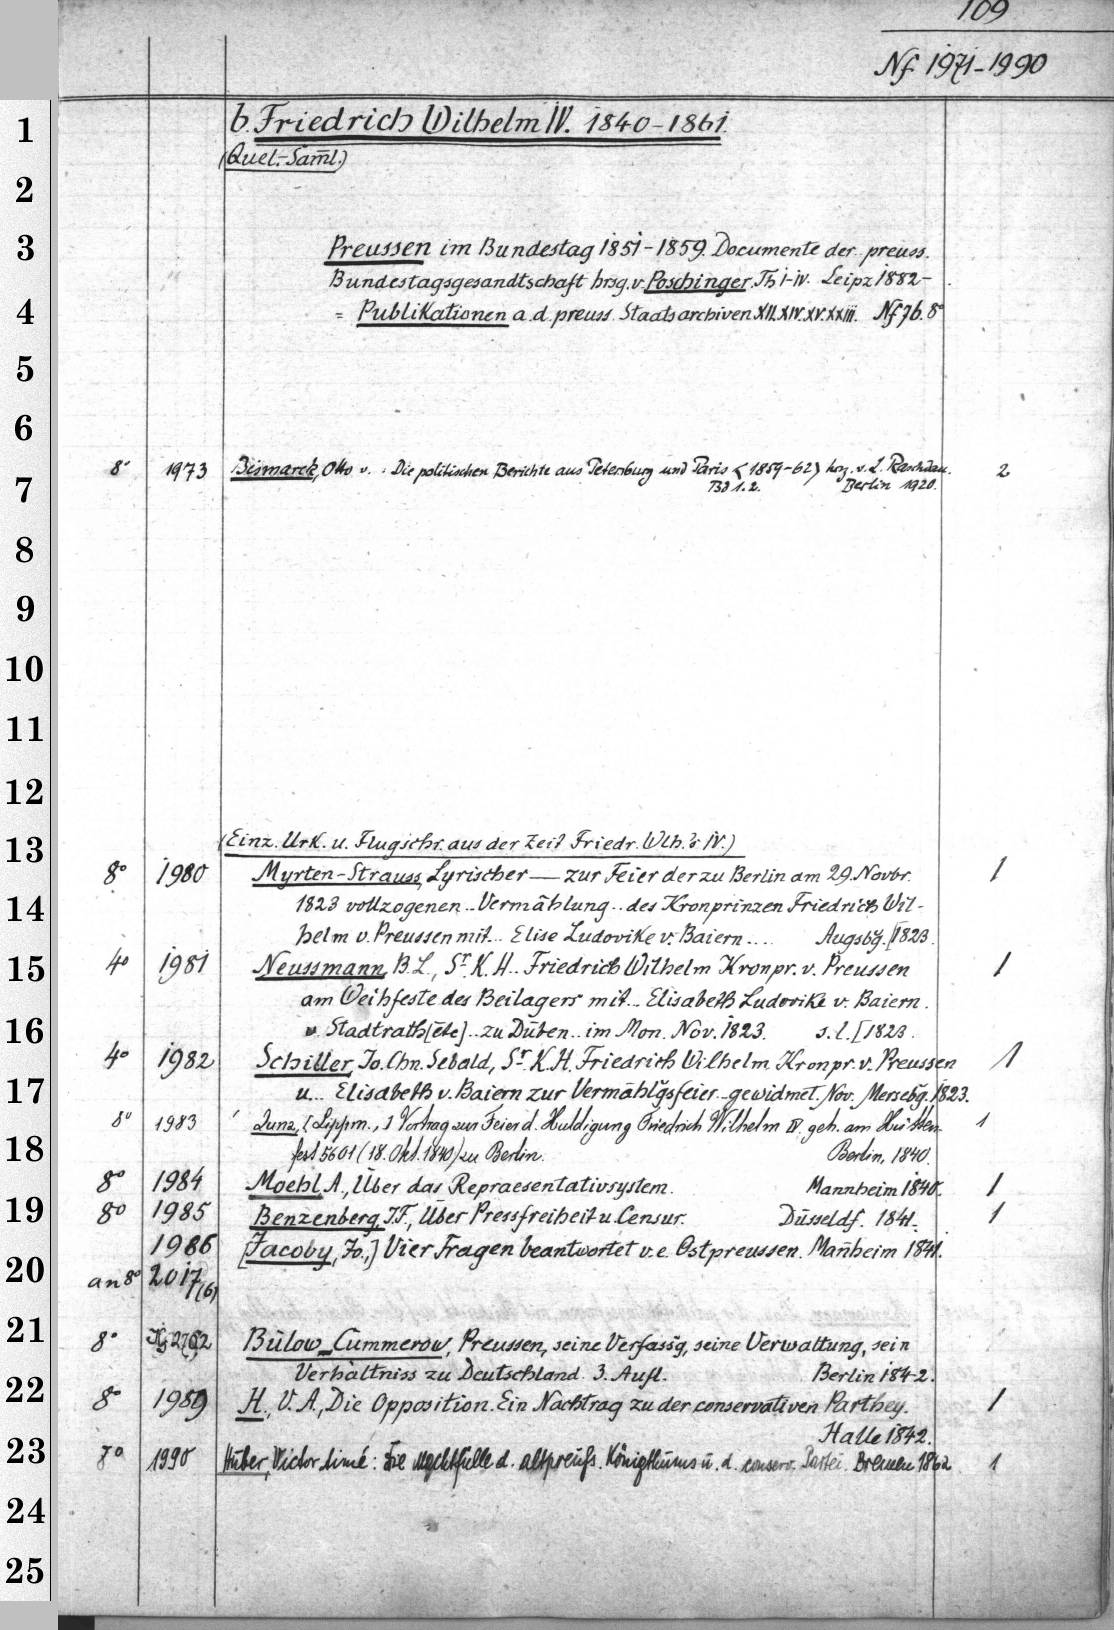 109
Nf 1971-1990
1
b. Friedrich Wilhelm IV. 1840-1861.
(Quel.-Sam̅l.)
2
3
Preussen im Bundestag 1851-1859. Documente der preuss.
Bundestagsgesandtschaft hrsg. v. Poschinger. Th I-IV. Leipz 1882-
4
= Publikationen a. d. preuss. Staatsarchiven XII. XIV. XV. XXIII. Nf 76. 8°
5
6
7
8° 1973 Bismarck, Otto v. : Die politischen Berichte aus Petersburg und Paris <1859-62> hrg. v. L. Raschdau. 2
Bd 1. 2. Berlin 1920.
8
9
10
11
12
13
(Einz. Urk. u. Flugschr. aus der Zeit Friedr. Wlh.'s IV.)
8° 1980 Myrten-Strauss, Lyrischer — zur Feier der zu Berlin am 29. Novbr. 1
14
1823 vollzogenen .. Vermählung .. des Kronprinzen Friedrich Wil-
helm v. Preussen mit .. Elise Ludovike v. Baiern .... Augsbg. [1823.
15
4° 1981 Neussmann, B. L., Sr. K. H. .. Friedrich Wilhelm Kronpr. v. Preussen 1
am Weihfeste des Beilagers mit .. Elisabeth Ludovike v. Baiern.
16
v. Stadtrath[ete] .. zu Düben .. im Mon. Nov. 1823. s. l. [1823.
4° 1982 Schiller, Jo. Chn. Sebald, Sr. K. H. Friedrich Wilhelm Kronpr. v. Preussen 1
17
u... Elisabeth v. Baiern zur Vermählgsfeier .. gewidmet. Nov. Mersebg. 1823.
8° 1983 Zunz, [Lippm.,] Vortrag zur Feier d. Huldigung Friedrich Wilhelm IV. geh. am Hütten- 1
18
fest 5601 (18. Okt. 1840) zu Berlin. Berlin, 1840.
8° 1984 Moehl, A., Über das Repraesentativsystem. Mannheim 1840. 1
19
8° 1985 Benzenberg, J. F., Über Pressfreiheit u. Censur. Düsseldf. 1841. 1
1986 [Jacoby, Jo.,] Vier Fragen beantwortet v. e. Ostpreussen. Man̅heim 1841.
20
an 8° 2017 (6)
21
8° 2762 Bülow-Cummerow, Preussen, seine Verfassg, seine Verwaltung, sein
Verhältniss zu Deutschland. 3. Aufl. Berlin 1842.
22
8° 1989 H., V. A., Die Opposition. Ein Nachtrag zu der conservativen Parthey. 1
Halle 1842.
23
8° 1990 Huber, Victor Aimé: Die Machtfülle d. altpreuß. Königthums u. d. conserv. Partei. Bremen 1862 1
24
25